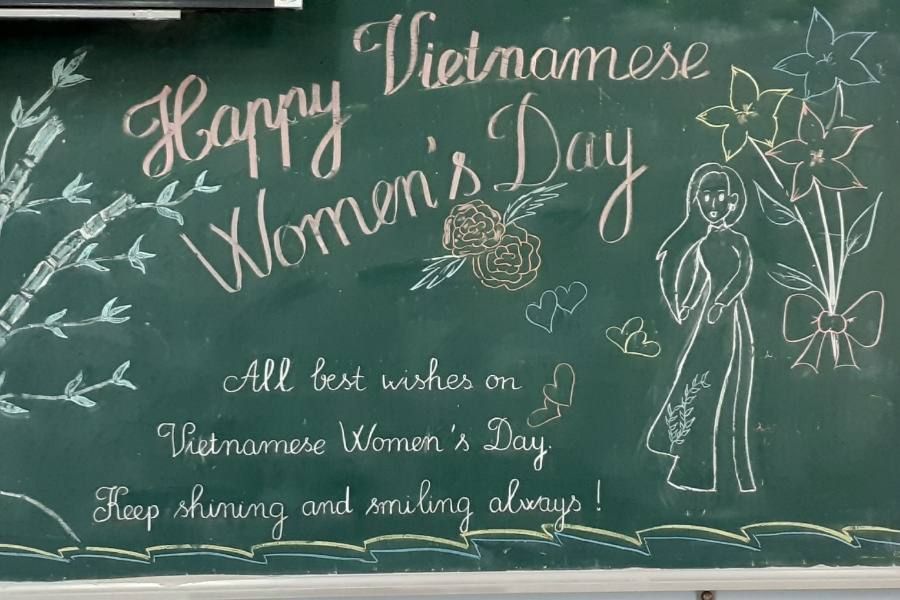 Happy Vietnamese
Women's Day
All best wishes on
Vietnamese Women's Day.
Keep shining and smiling always!